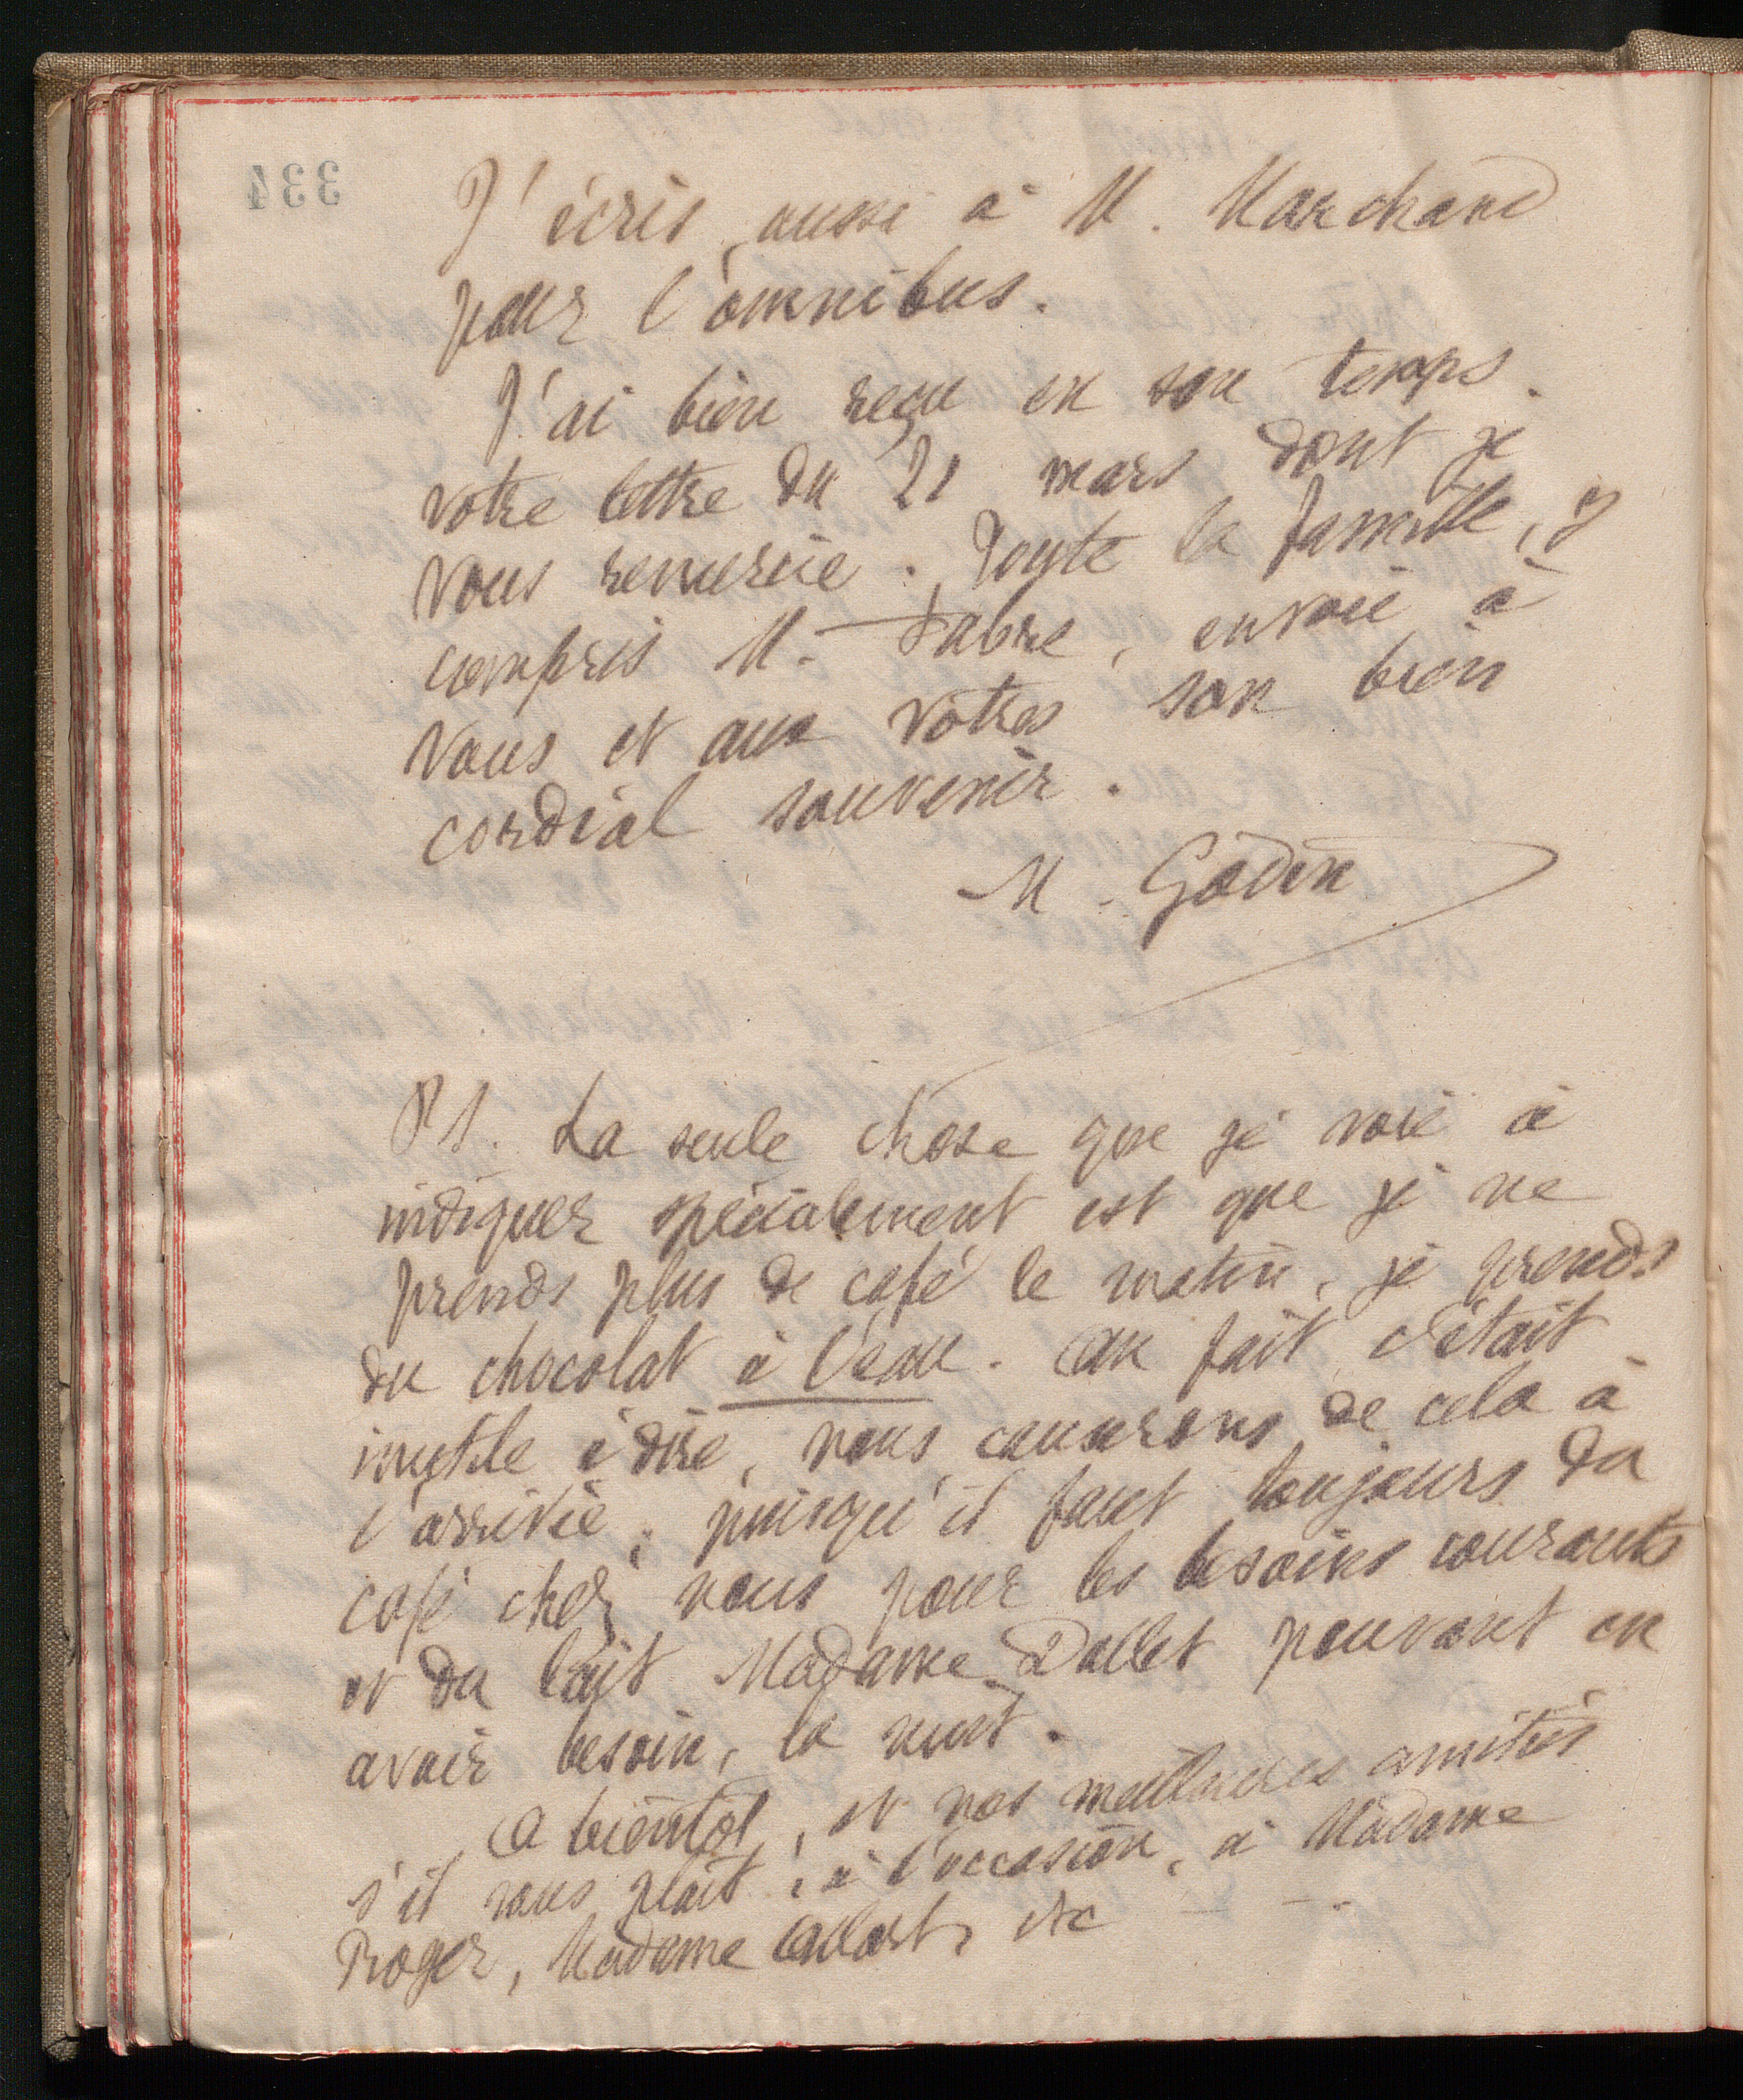 334
J'écris aussi à M. Marchand
pour l'omnibus.
J'ai bien reçu en son temps
votre lettre du 21 mars dont je
vous remercie. Toute la famille, y
compris M. Fabre, envoie à
vous et aux vôtres son bien
cordial souvenir.
M. Godin
PS. La seule chose que je voie à
indiquer spécialement est que je ne
prends plus de café le matin, je prends
du chocolat à l'eau. Au fait c'était
inutile à dire, nous causerons de cela à
l'arrivée, puisqu'il faut toujours du
café chez nous pour les besoins courants
et du lait Madame Dallet pouvant en
avoir besoin, la nuit.
A bientôt, et nos meilleures amitiés
s'il vous plaît, à l'occasion, à Madame
Roger, Madame Allart, etc